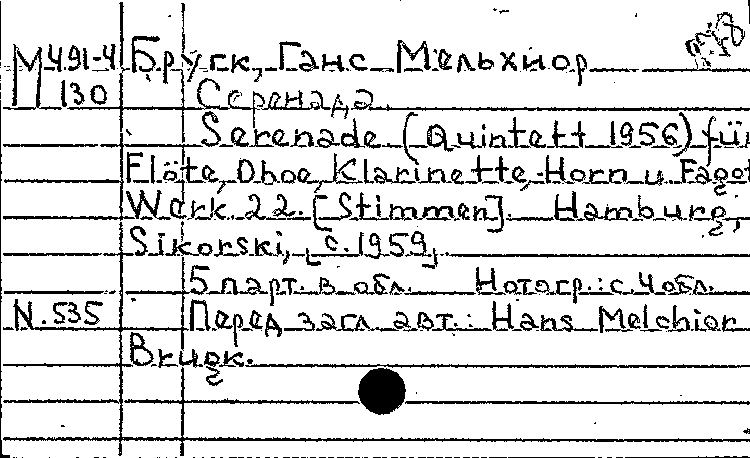 М491-4 Бруск, Ганс Мельхиор
130 Серенада.
Serenade (Quintett 1956) für
Flöte, Oboe, Klarinette, Horn u. Fagot
Werk 22. [Stimmen]. Hamburg,
Sikorski, [c. 1959].
5 парт. в обл. Нотогр.: с. 4 обл.
N. 535 Перед загл. авт.: Hans Melchior
Brugk.